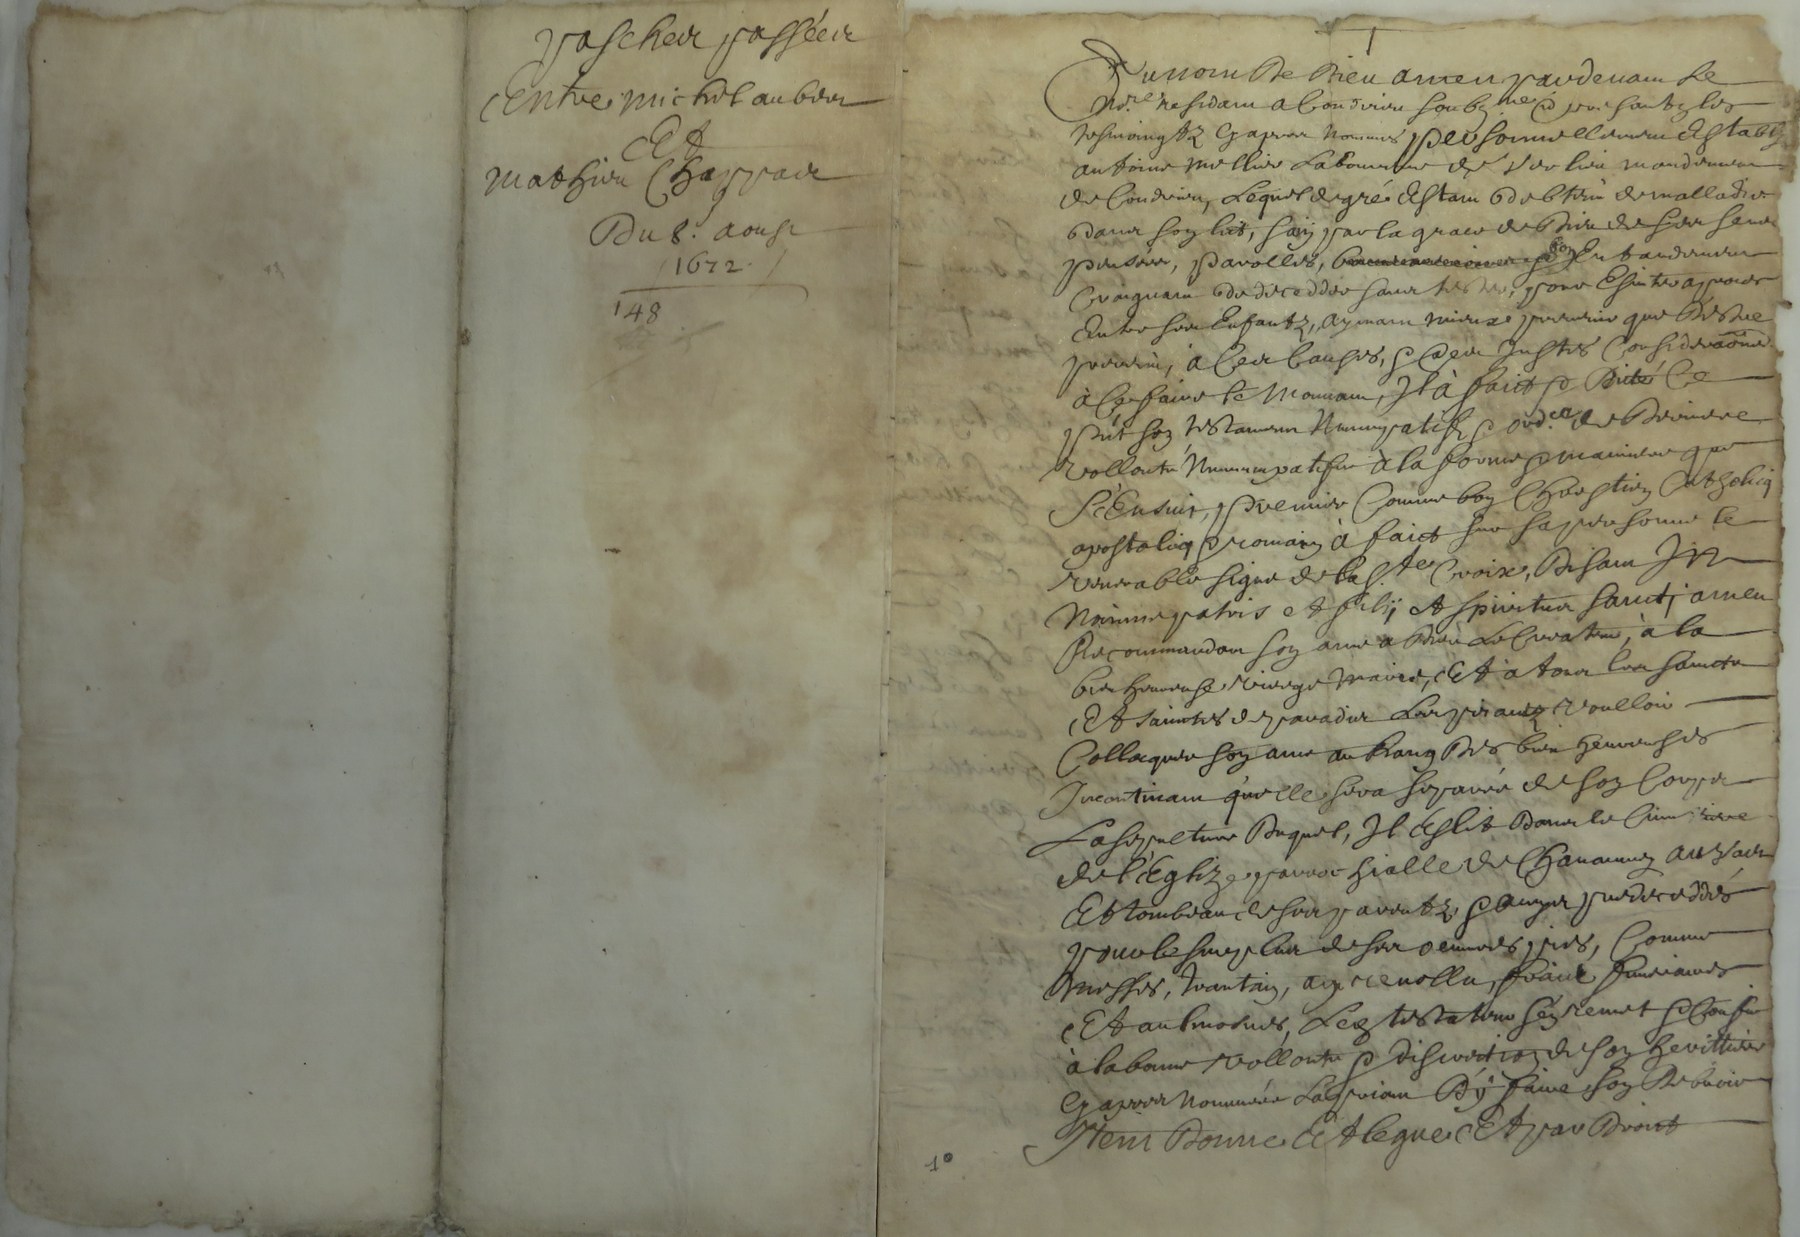 pascher passées
Entre michel aubert
Et
mathieu Chappais
Du 8. aoust
1672
148
Au nom De Dieu amen pardevant Le
No.re residant a Condrieu soubz.ne & presentz les
tesmoingtz cy apres nommes personnellement Estably
antoine mellier Laboureur de Verlieu mandement
de Condrieu, Lequel de gré Estant detenu de malladie
dans son lict, sain par la grace de Dieu de ses sens
pensees, parolles, & bon Entandement
Craignant de decedder sans tester, pour Esviter a proces
Entre ses Enfantz, aymant mieux prevenir que D'estre
prevenu, à Ces Causes, & aues Justes Considera͠ons
à Ce faire le Mouvant, Il à faict & Dicté Ce
p͠nt son testament Nuncupatif & ord.ce de Derniere
vollonté Nuncupatifve à la forme & maniere que
S'Ensuit, premier Comme bon Chrestien Catholiq
apostoliq & romain à faict sur sa personne le
venerable signe de la S.te Croix, Disant In
Nomine patris et filij et spiritus sancti amen
Recommandant son ame a Dieu Le Createur, à la
bien heureuse vierge marie, Et à tous les saincts
Et sainctes de paradis Les priantz voulloir
Collocquer son ame au Rang Des bien heureuses
Incontinant qu'elle sera separée de son Corps
La sepulture Duquel, Il Eslit Dans le Cimetiere
de l'Eglize parrochialle de Chavannay au vas
Et tombeau de ses parentz, & aupres predeceddés
pour le surplus de ses oeuvres pies, Comme
Messes, trantain, an revollu, fraix funeraires
Et aulmosnes, Led testateur s'en remet & Confie
à la bonne vollonté & discretion de son heritiere
cy apres nommée La priant D'y faire son Debvoir
Item Donne Et legue Et par Droict
1º